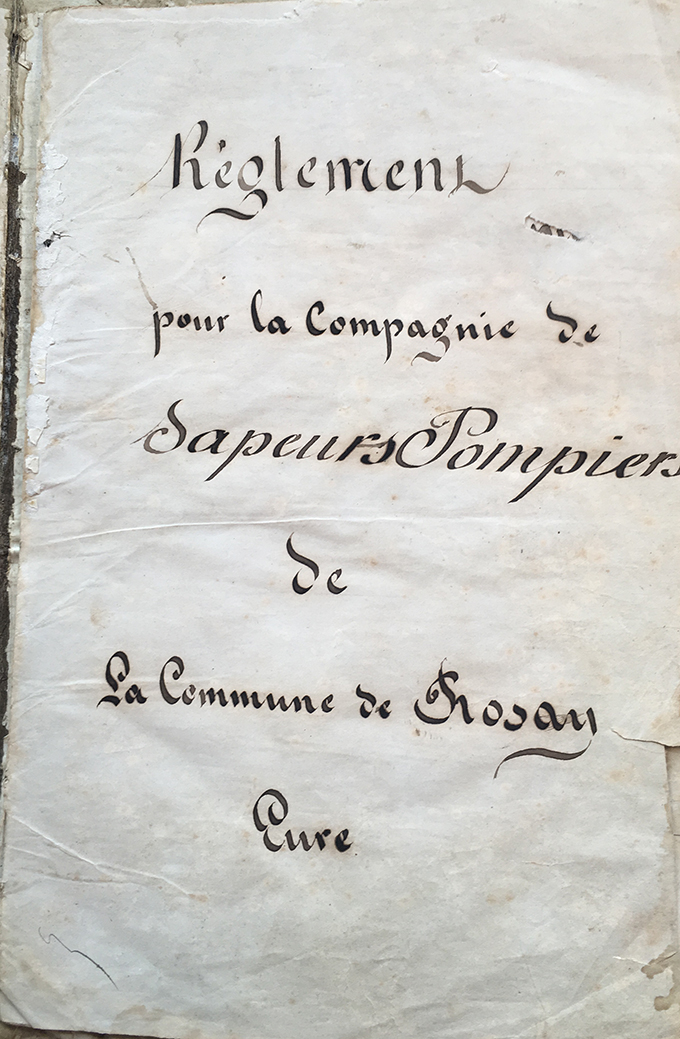 Règlement
pour la Compagnie de
Sapeurs Pompiers
de
La Commune de Rosay
Eure